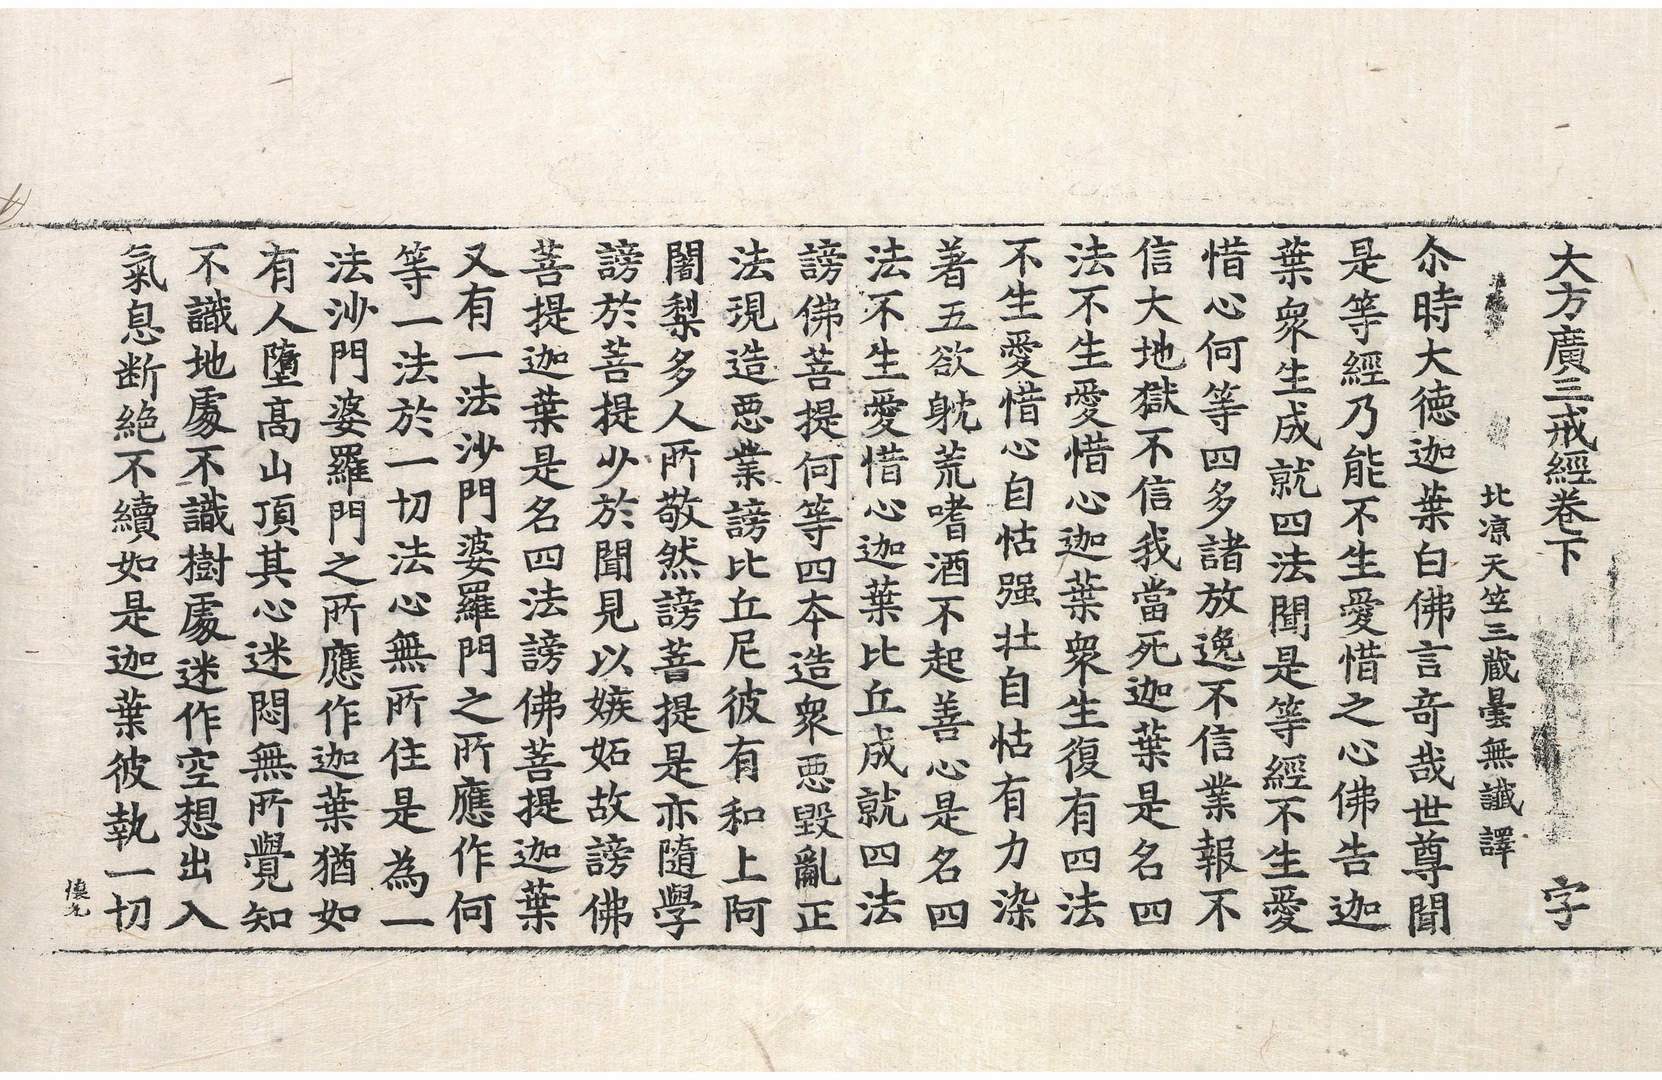 大方廣三戒經卷下 字
北涼天竺三藏曇無讖譯
尒時大德迦葉白佛言竒哉世尊聞
是等經乃能不生愛惜之心佛告迦
葉衆生成就四法聞是等經不生愛
惜心何等四多諸放逸不信業報不
信大地獄不信我當死迦葉是名四
法不生愛惜心迦葉衆生復有四法
不生愛惜心自怙强壯自怙有力染
著五欲躭荒嗜酒不起善心是名四
法不生愛惜心迦葉比丘成就四法
謗佛菩提何等四本造衆惡毀亂正
法現造惡業謗比丘尼彼有和上阿
闍梨多人所敬然謗菩提是亦隨學
謗於菩提少於聞見以嫉妬故謗佛
菩提迦葉是名四法謗佛菩提迦葉
又有一法沙門婆羅門之所應作何
等一法於一切法心無所住是為一
法沙門婆羅門之所應作迦葉猶如
有人墮高山頂其心迷悶無所覺知
不識地處不識樹處迷作空想出入
氣息断絶不續如是迦葉彼執一切